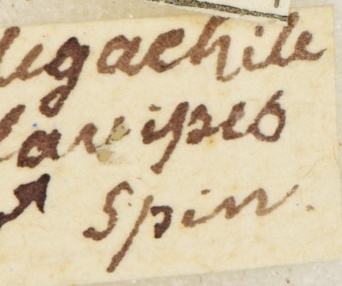 egachile
lavipes
♂ Spin.